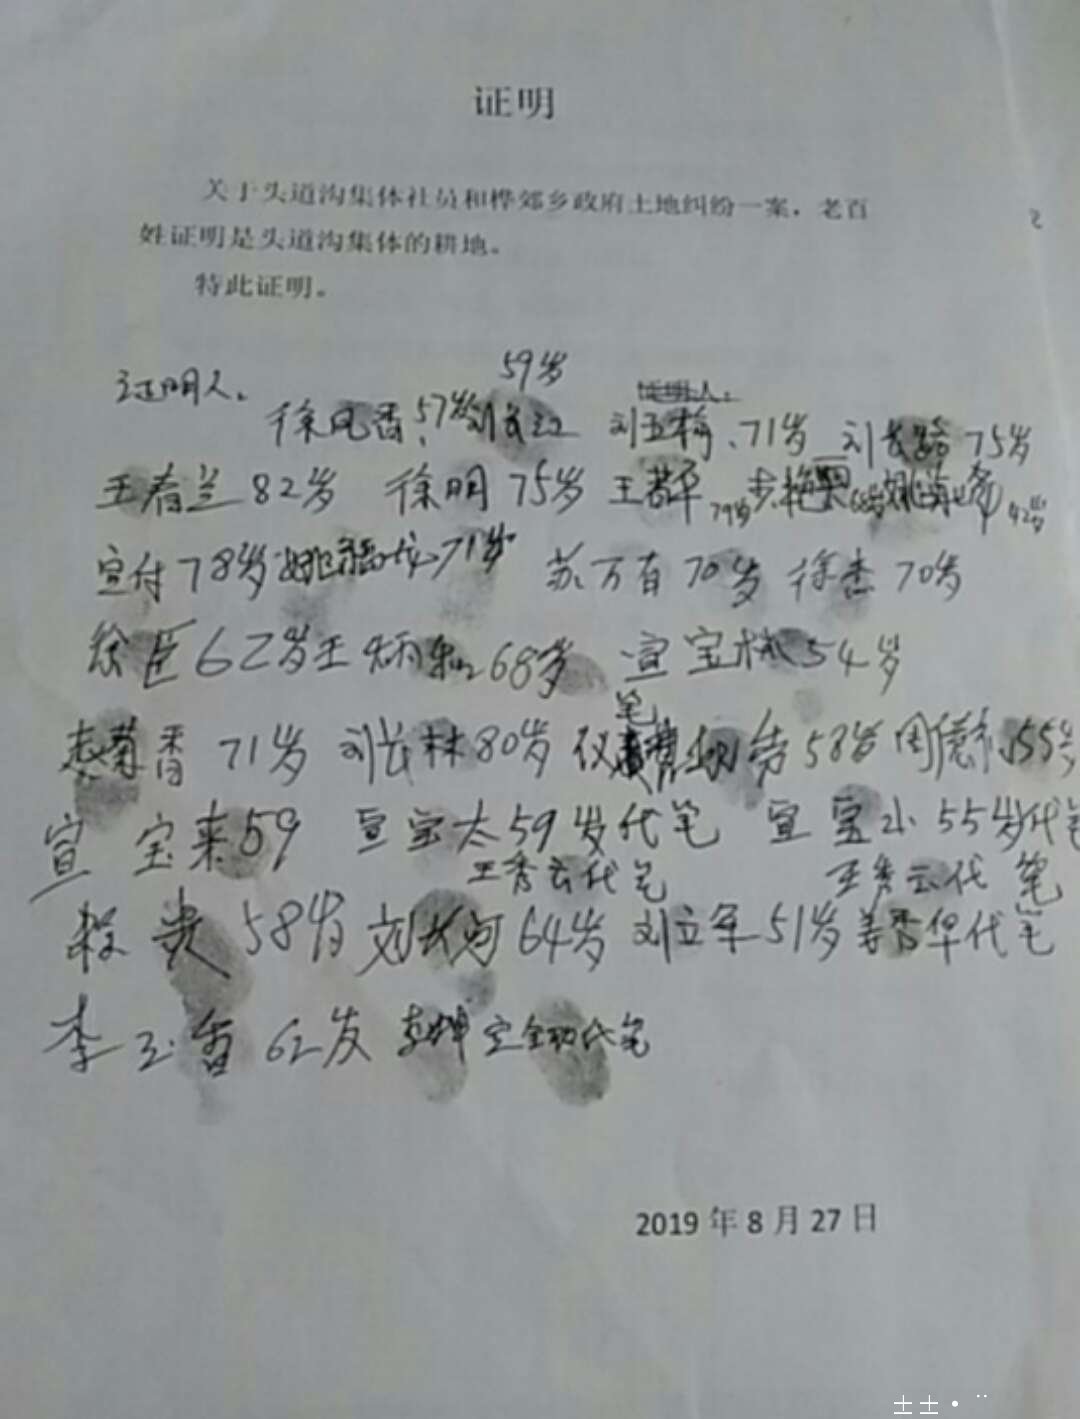 证明
关于头道沟集体社员和桦郊乡政府土地纠纷一案，老百
姓证明是头道沟集体的耕地。
特此证明。
59岁
证明人。 证明人：
徐凤香、57岁 刘长江 刘玉梅、71岁 刘长路 75岁
王春兰 82岁 徐明 75岁 王若平 79岁 68岁 42岁
宣付 78岁 71岁 苏万有 70岁 徐杰 70岁
徐臣 62岁 王炳和 68岁 宣宝林 54岁
笔
菊香 71岁 刘长林 80岁 58岁 周德 55岁
宣宝来 59 宣宝太 59岁代笔 宣宝小 55岁代笔
王秀云代笔 王秀云代笔
贵 58岁 刘长河 64岁 刘立军 51岁 姜香华代笔
李玉香 62岁 代笔
2019 年 8 月 27 日
2